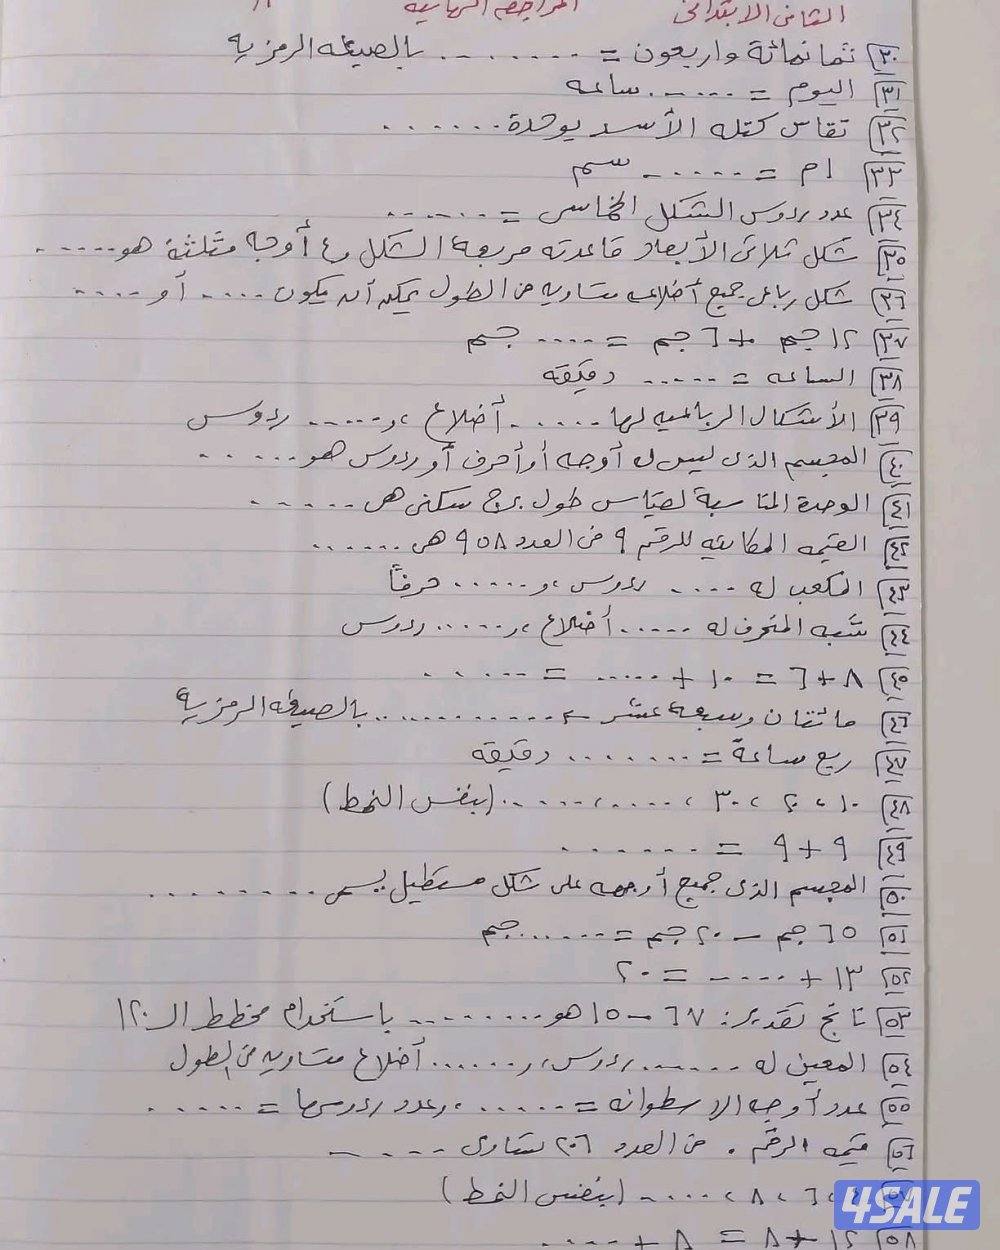 الثانى الابتدائى المراجعة النهائية
٣٠ ثمانمائة واربعون = ........ بالصيغه الرمزيه
٣١ اليوم = ...... ساعه
٣٢ تقاس كتله الأسد بوحدة .......
٣٣ ١م = ...... سم
٣٤ عدد رءوس الشكل الخماسى = ......
٣٥ شكل ثلاثى الأبعاد قاعدته مربعة الشكل و٤ أوجه مثلثة هو .....
٣٦ شكل رباعى جميع أضلاعه متساويه فى الطول يمكن أن يكون .... أو ....
٣٧ ١٢ جم + ٦ جم = .... جم
٣٨ الساعه = ..... دقيقه
٣٩ الأشكال الرباعيه لها ..... أضلاع ، و..... رءوس
٤٠ المجسم الذى ليس له أوجه أو أحرف أو رءوس هو .....
٤١ الوحدة المناسبة لقياس طول برج سكنى هى .....
٤٢ القيمه المكانيه للرقم ٩ فى العدد ٩٥٨ هى ......
٤٣ المكعب له .... رءوس ، و ..... حرفاً
٤٤ شبه المنحرف له ..... أضلاع ، و..... رءوس
٤٥ ٨ + ٦ = ١٠ + ..... = .....
٤٦ مائتان وسبعه عشر = .......... بالصيغه الرمزيه
٤٧ ربع ساعة = ....... دقيقه
٤٨ ١٠ ، ٢٠ ، ٣٠ ، .... ، ..... (بنفس النمط)
٤٩ ٩ + ٩ = ......
٥٠ المجسم الذى جميع أوجهه على شكل مستطيل يسمى ........
٥١ ٦٥ جم - ٢٠ جم = ...... جم
٥٢ ١٣ + .... = ٢٠
٥٣ ناتج تقدير : ٦٧ - ١٥ هو ........ باستخدام مخطط الـ ١٢٠
٥٤ المعين له ...... رءوس ، و ...... أضلاع متساويه فى الطول
٥٥ عدد أوجه الإسطوانه = ...... ، وعدد رءوسها = ......
٥٦ قيمه الرقم ٠ فى العدد ٢٠٦ تساوى .....
٥٧ ٤ ، ٦ ، ٨ ، .... (بنفس النمط)
٥٨ ١٢ + ٨ = ٨ + ....
4SALE